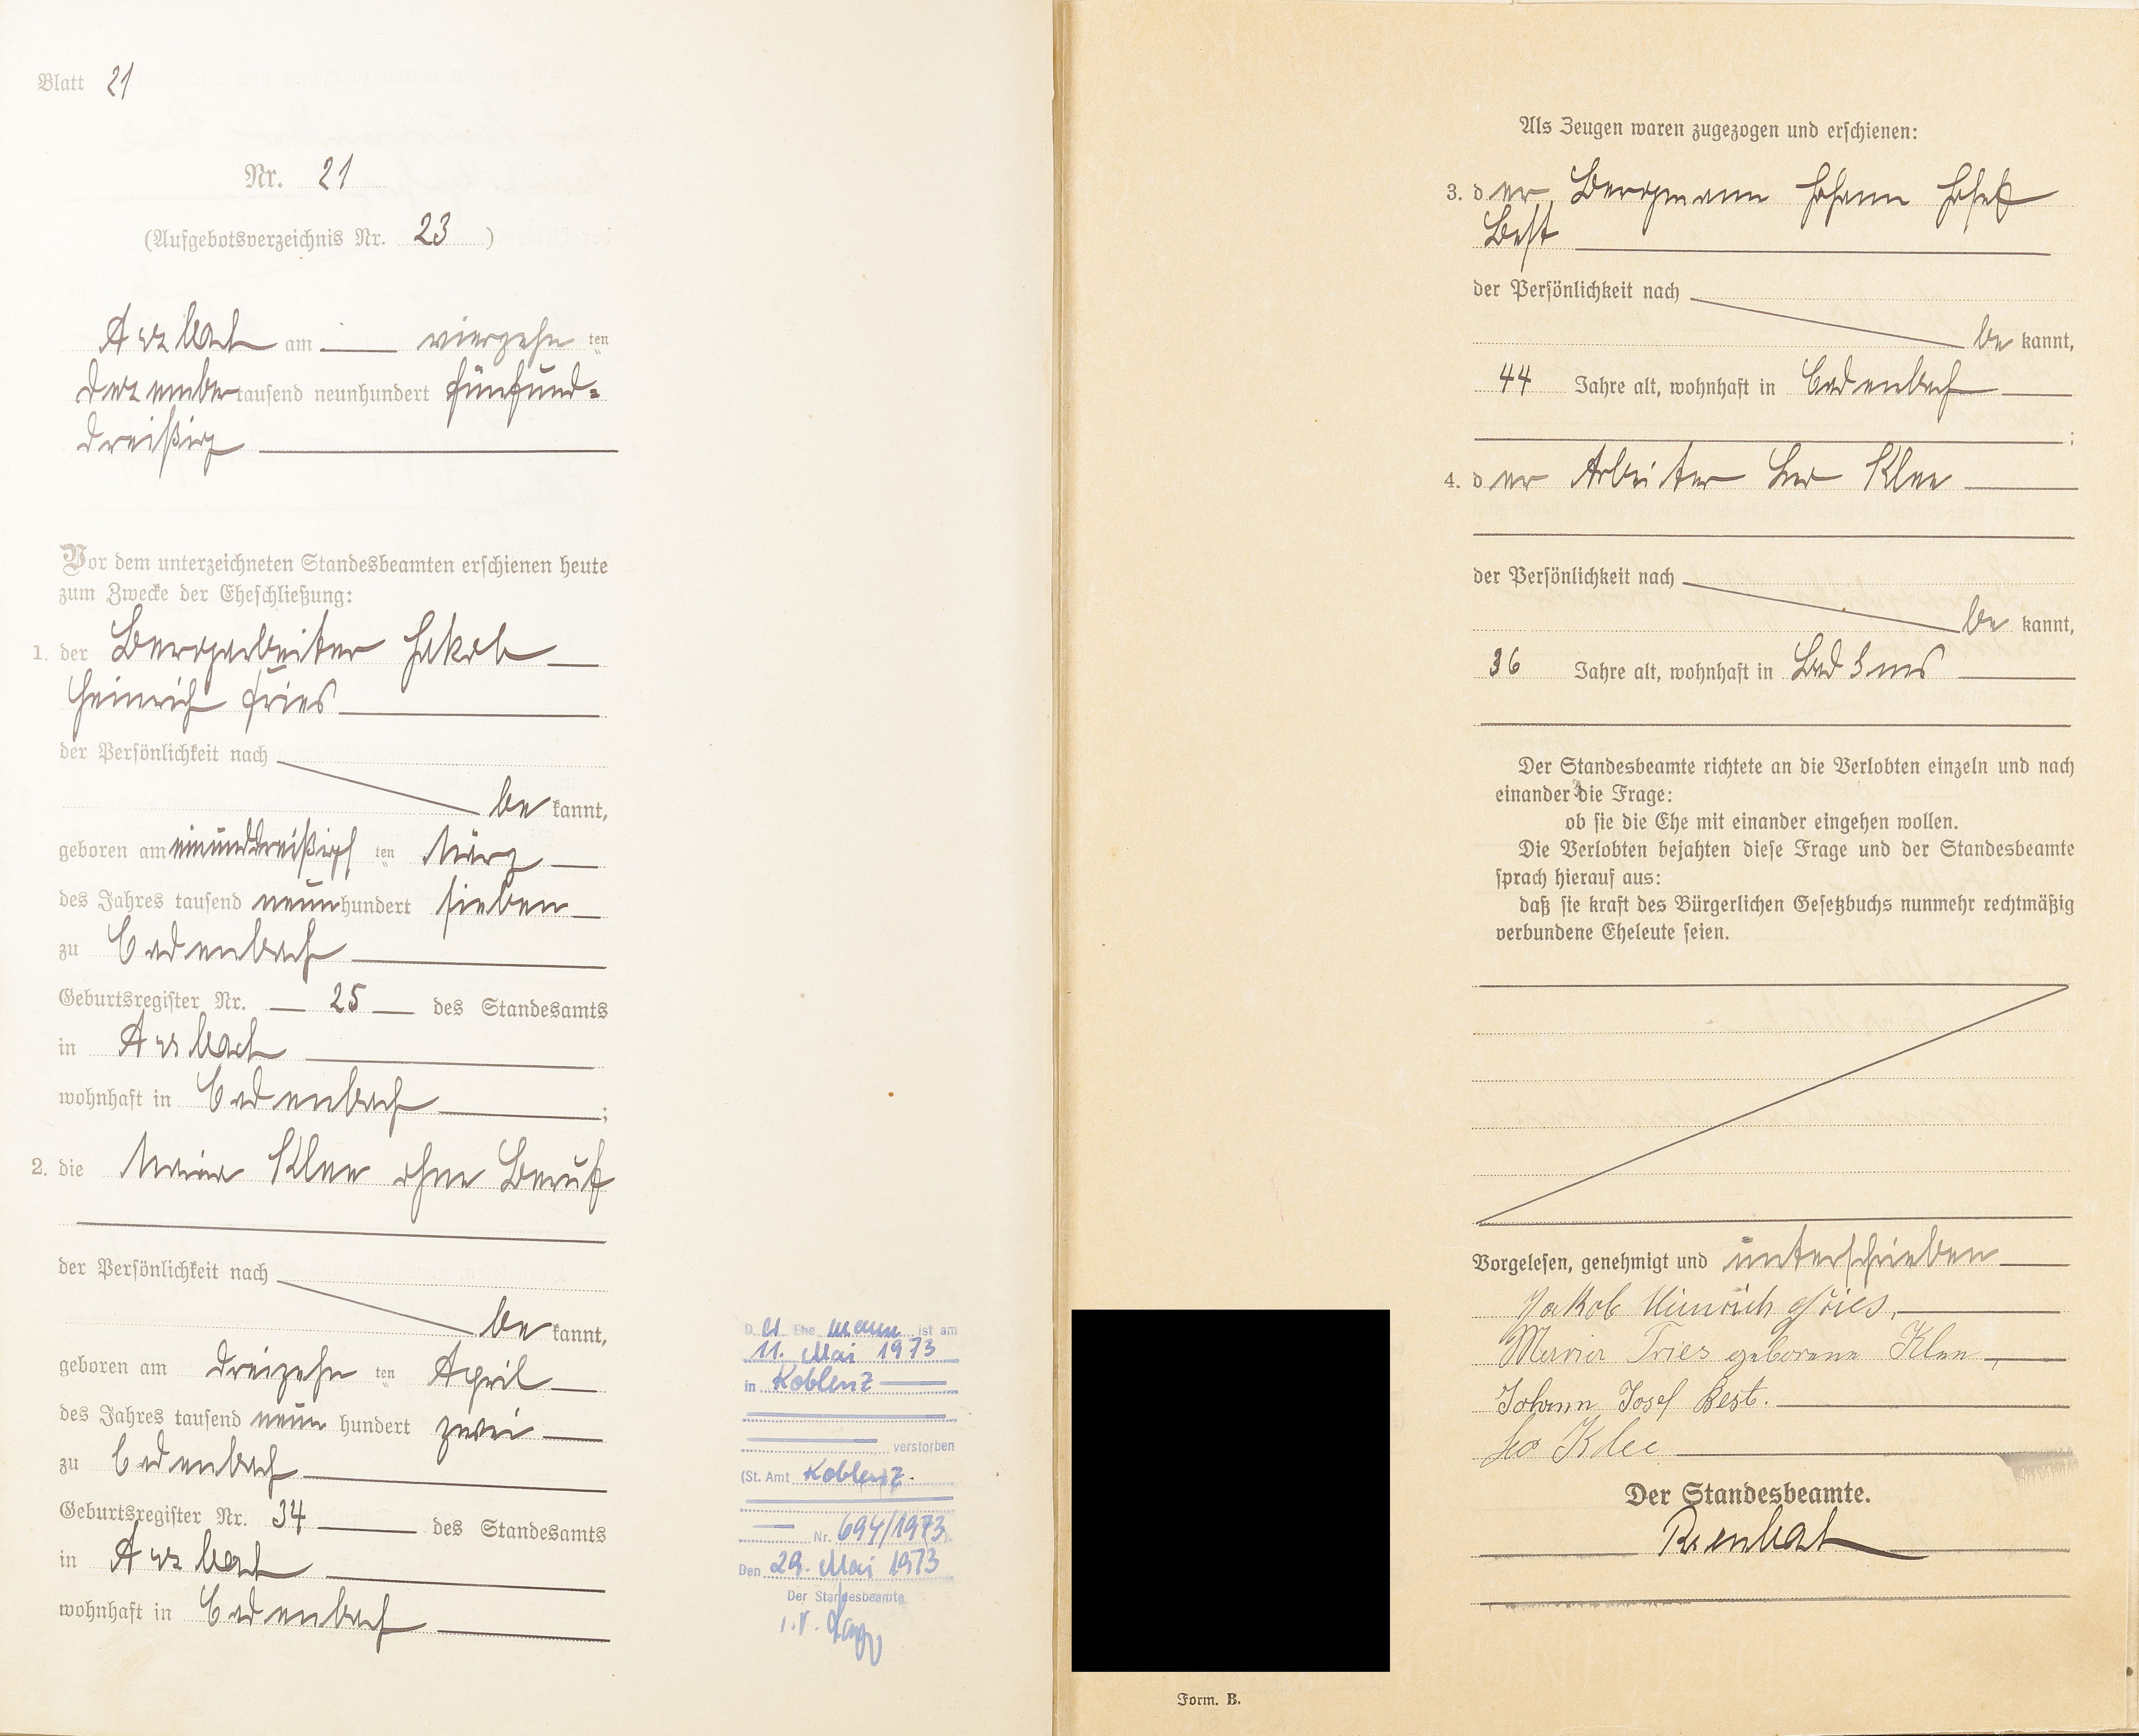 Blatt 21
Nr. 21
(Aufgebotsverzeichnis Nr. 23)
Arzbach am vierzehn ten
Dezember tausend neunhundert fünfund-
dreißig
Vor dem unterzeichneten Standesbeamten erschienen heute
zum Zwecke der Eheschließung:
1. der Bergarbeiter Jakob
Heinrich Fries
der Persönlichkeit nach
be kannt,
geboren am einunddreißigs ten März
des Jahres tausend neun hundert sieben
zu Cadenbach
Geburtsregister Nr. 25 des Standesamts
in Arzbach
wohnhaft in Cadenbach ;
2. die Maria Klee ohne Beruf
der Persönlichkeit nach
be kannt,
geboren am dreizehn ten April
des Jahres tausend neun hundert zwei
zu Cadenbach
Geburtsregister Nr. 34 des Standesamts
in Arzbach
wohnhaft in Cadenbach
D er Ehe mann ist am
11. Mai 1973
in Koblenz
verstorben
(St. Amt Koblenz.
Nr. 694/1973)
Den 29. Mai 1973
Der Standesbeamte
i.V.
Als Zeugen waren zugezogen und erschienen:
3. d er Bergmann Johann Josef
Best
der Persönlichkeit nach
be kannt,
44 Jahre alt, wohnhaft in Cadenbach
;
4. d er Arbeiter Leo Klee
der Persönlichkeit nach
be kannt,
36 Jahre alt, wohnhaft in Bad Ems
Der Standesbeamte richtete an die Verlobten einzeln und nach
einander die Frage:
ob sie die Ehe mit einander eingehen wollen.
Die Verlobten bejahten diese Frage und der Standesbeamte
sprach hierauf aus:
daß sie kraft des Bürgerlichen Gesetzbuchs nunmehr rechtmäßig
verbundene Eheleute seien.
Vorgelesen, genehmigt und unterschrieben
Jakob Heinrich Fries,
Maria Fries geborene Klee,
Johann Josef Best.
Leo Klee
Der Standesbeamte.
Form. B.